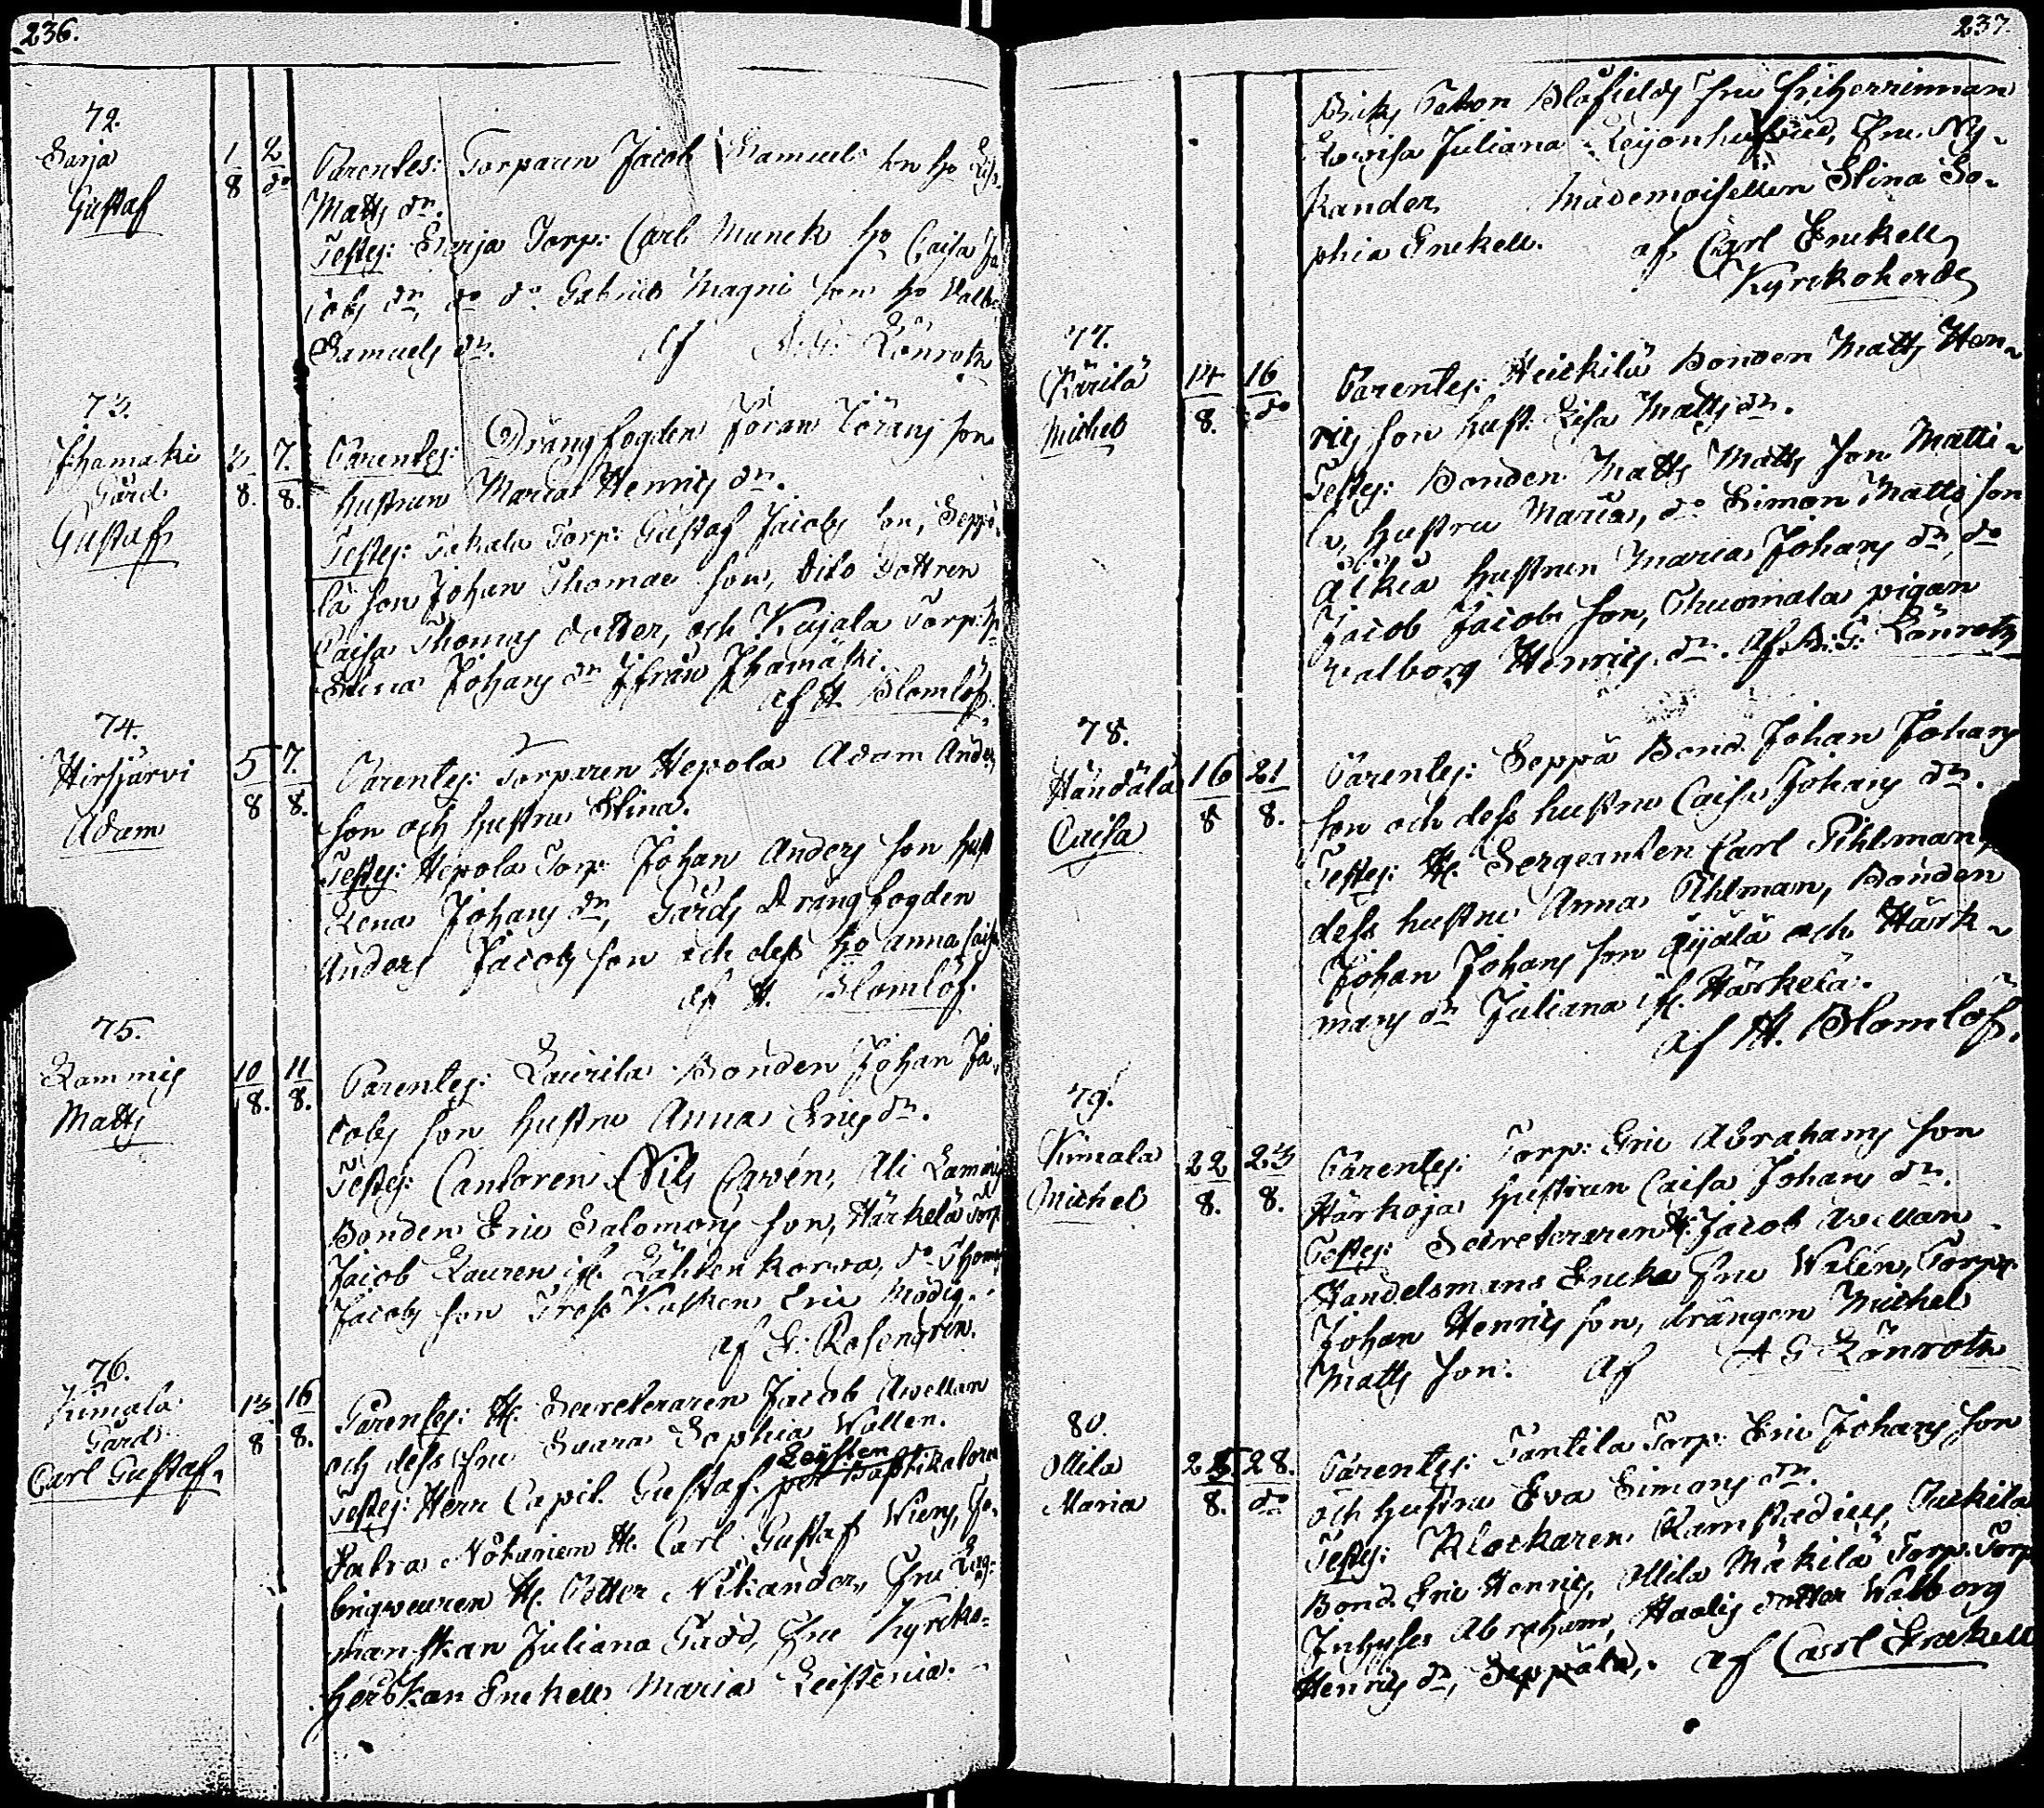 236.
72.
Sarja
Gustaf
1/8 2/do
Parentes: Torparen Jacob Samuels son ho Lisa
Matts dr.
Testes: Sarja Torp: Carl Munck ho Caisa Ja
cobs dr, do do Gabriel Magni son ho Valb.
Samuels dr. af Lönroth
73.
Ihamäki
Gård
Gustaf
3/8. 7./8.
Parentes: Drängfogden Jöran Jörans son
hustrun Maria Henrics dr.
Testes: Torp: Gustaf Jacobs son, Seppä
lä son Johan Thomae son, dito dottren
Caisa Thomas dotter, och Kujala Torp: h.
Stina Johans dr ifrån Ihamäki.
af H. Blomlöf.
74.
Hirsjärvi
Adam
5/8 7./8.
Parentes: Torparen Hepola Adam Anders
son och hustru Stina.
Testes: Hepola Torp: Johan Anders son hust
Lena Johans dr, Gårds Drängfogden
Anders Jacobs son och dess ho Anna Caisa
af H. Blomlöf.
75.
Lammis
Matts
10/8. 11/8.
Parentes: Laurila Bonden Johan Ja
cobs son hustru Anna Erics dr.
Testes: Cantoren Nils Cavén, Ali Lammis
Bonden Eric Salomons son, Härkelä Torp
Jacob Lauren if. korva, do Thomas
Jacobs son Tross Kusken Eric Modig.
af G: Rosengren.
76.
Kimala
Gård
Carl Gustaf.
13/8 16/8.
Parentes: H. Secreteraren Jacob Avellan
och dess fru Saara Sophia Wallen.
Testes: Herr Capit. Gustaf Leijsten
Extra Notarien H. Carl Gustaf Wiens, Fa,
briqueuren H. Petter Nikander, Fru Lag-
manskan Juliana Gadd, Fru Kyrcko-
herdskan Enckell Maria Leistenia.
237.
Lovisa Juliana Leijonhufvud, Fru Ny-
kander, Mademoisellen Stina So-
phia Enckell. af Carl Enckell
Kyrckoherde
77.
Kärilä
Michel
14/8. 16/do
Parentes: Heickilä Bonden Matts Hen
rics son hust: Lisa Matts dr.
Testes: Bonden Matts Matts son Matti
la, hustru Maria, do Simon Matts son
Älkiä hustrun Maria Johans dr, do
Jacob Jacobs son, Thuomala pigan
Valborg Henrics dr. Af A: G: Lönroth
78.
Händälä
Caisa
16/8 21/8.
Parentes: Seppä Bond. Johan Johans
son och dess hustru Caisa Johans dr.
Testes: H. Sergeanten Carl Pihlman,
dess hustru Anna Pihlman, Bonden
Johan Johans son Äijälä och Härk-
mans dr Juliana if. Härkelä.
af H. Blomlöf.
79.
Kimala
Michel
22/8. 23/8.
Parentes: Torp: Eric Abrahams son
Härkoja hustrun Caisa Johans dr.
Testes: Secreteraren H: Jacob Avellan
Handelsmans Encka Fru Walén, Torp:
Johan Henrics son, drängen Michel
Matts son. af A G Lönroth
80.
Ollila
Maria
25/8. 28./do
Parentes: Pantila Torp: Eric Johans son
och hustru Eva Simons dr.
Testes: Klockaren Ramstadius, Juckila
Bond. Eric Henrics, Ollila Mäkilä Torp: Torp
Inhyses Abraham, dotter Walborg
Henrics dr, Seppälä. af Carl Enckell